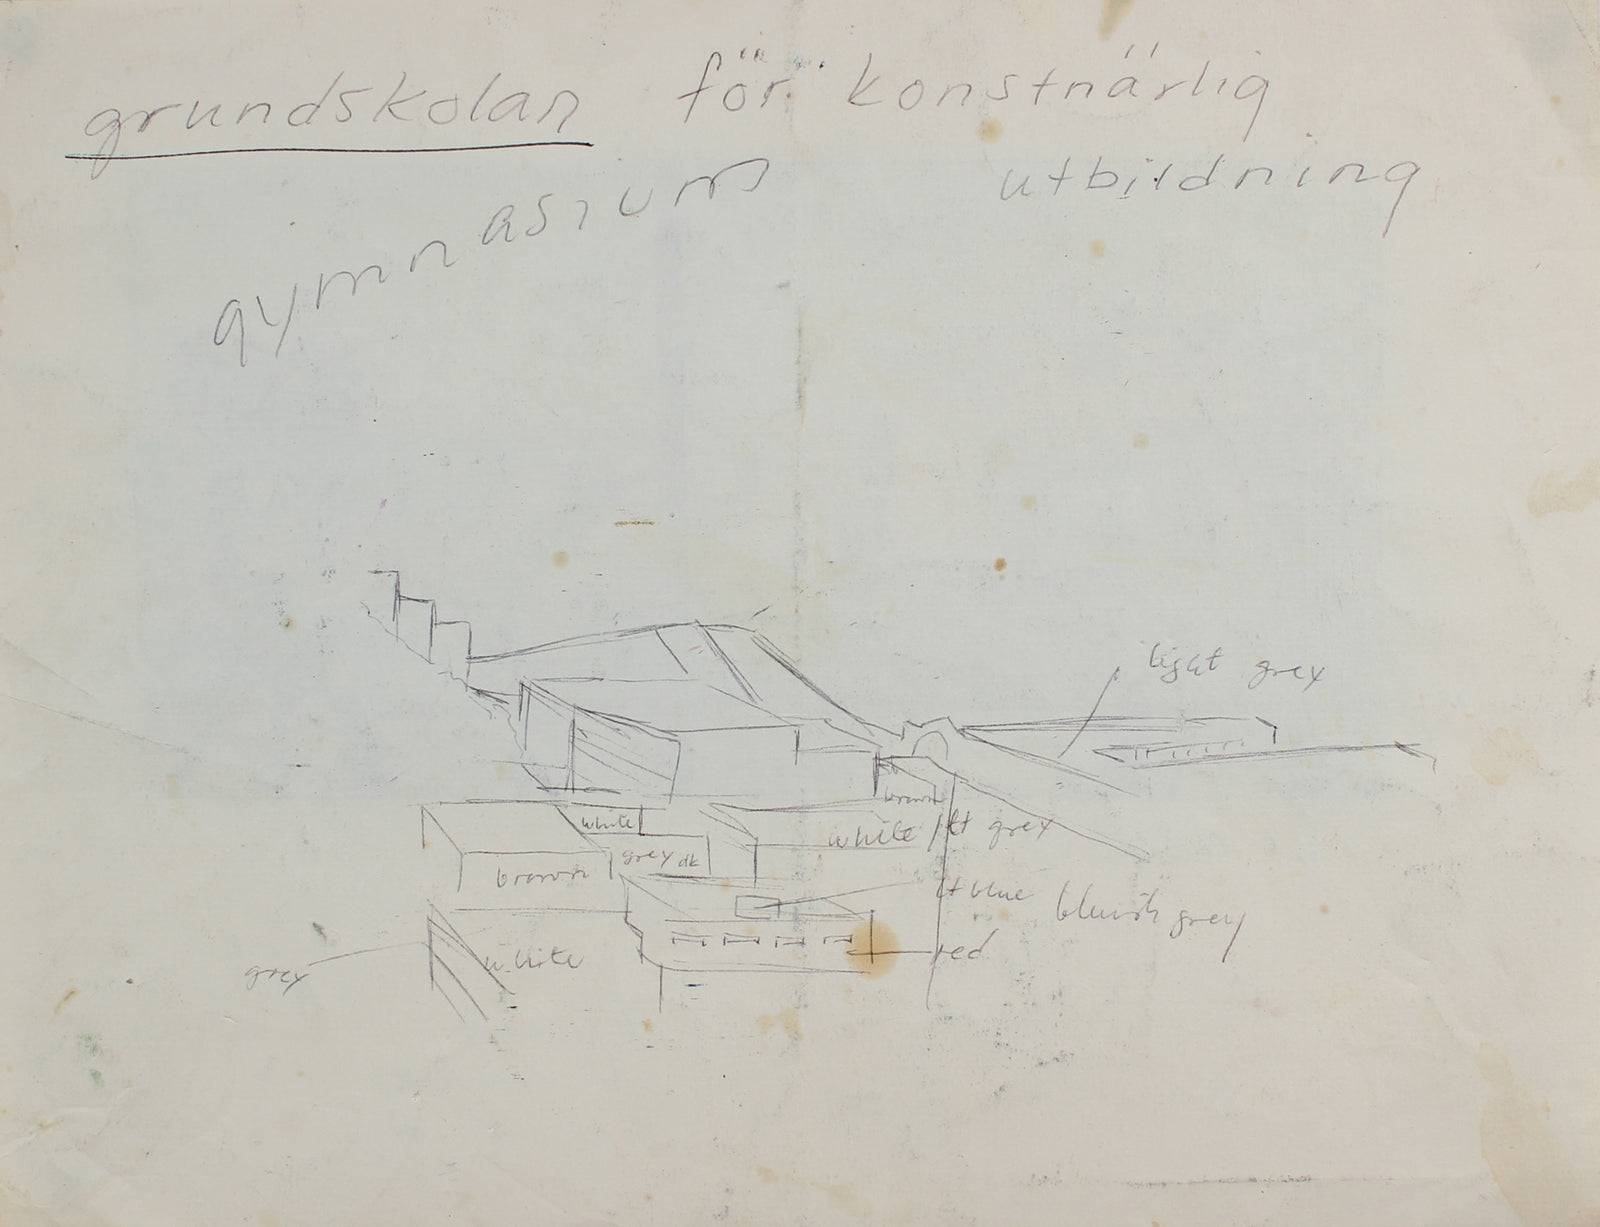 grundskolan för konstnärlig
utbildning
gymnasium
light grey
brown
white
white / lt grey
grey dk
brown
lt blue
bluish grey
white
red
grey